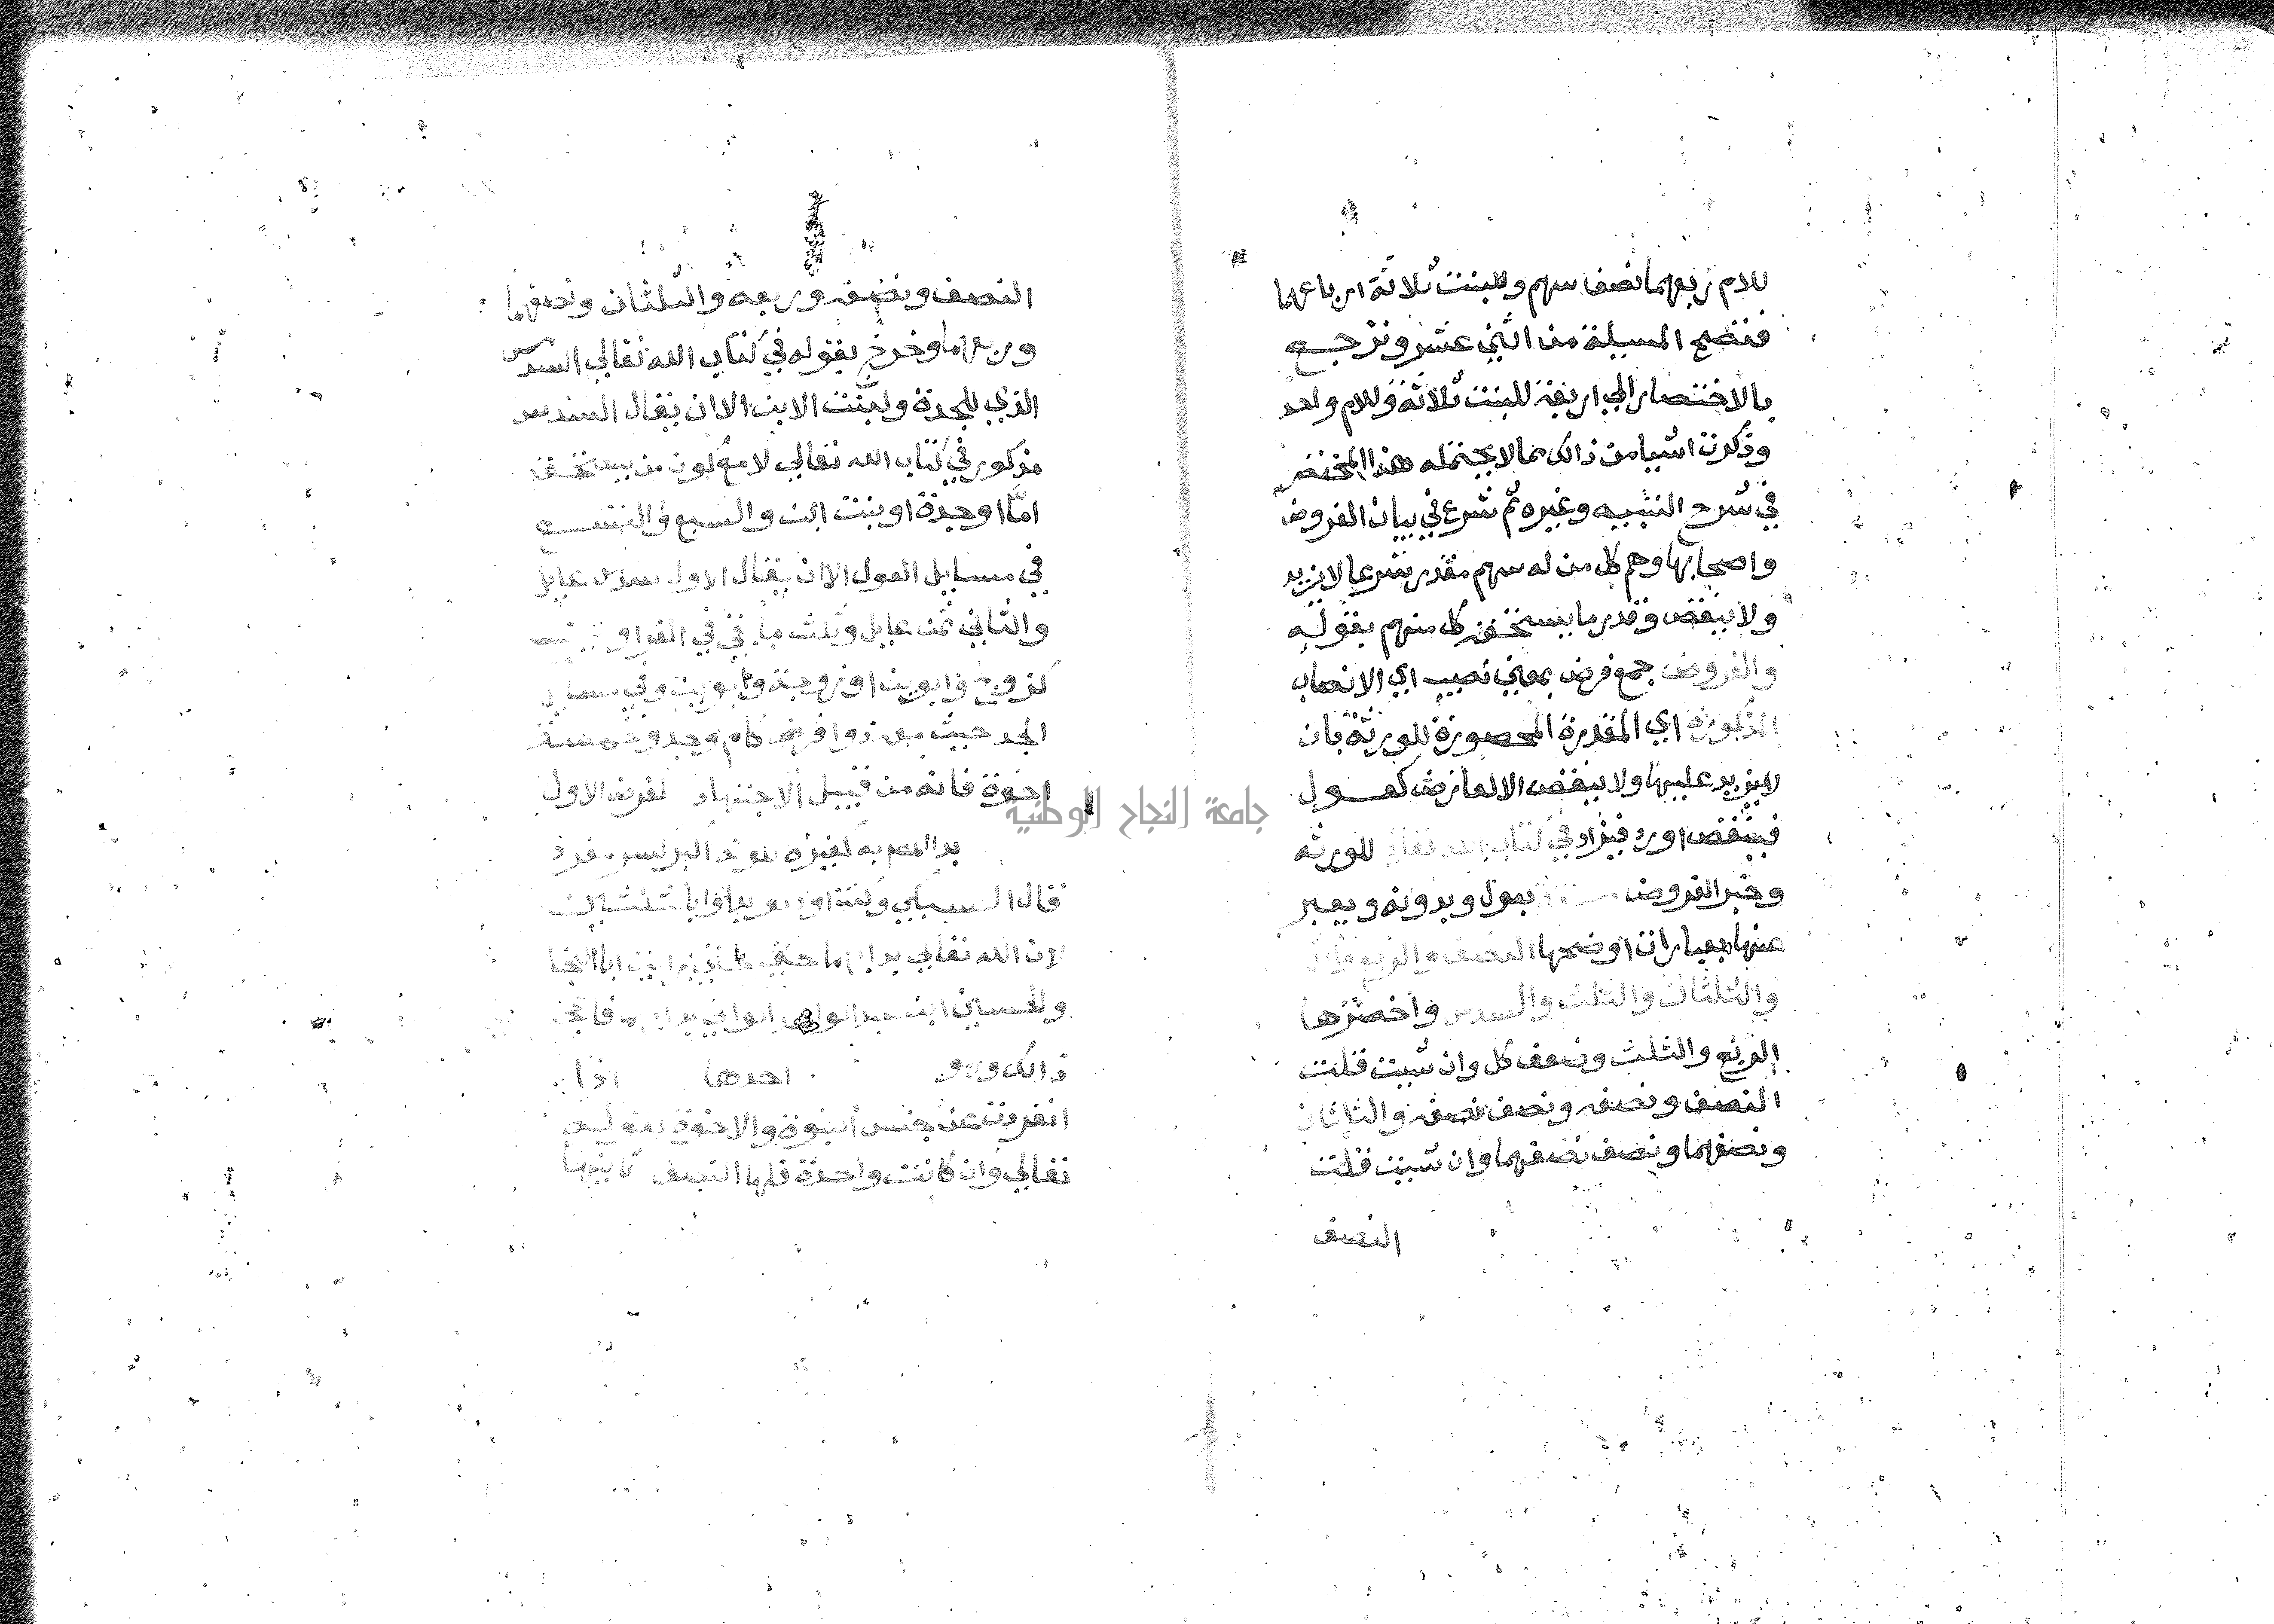 للام ربعهما نصف سهم وللبنت ثلاثة ارباعهما
فتصح المسيلة من اثني عشر وترجع
بالاختصار الي اربعة للبنت ثلاثة وللام واحد
وذكرت اشيا من ذالك مما لا يحتمله هذا المختصر
في شرح التنبيه وغيره ثم شرع في بيان الفروض
واصحابها وهم كل من له سهم مقدر شرعا لا يزيد
ولا ينقص وقدر ما يستحقه كل منهم بقوله
والفروض جمع فرض بمعني نصيب اي الانصبا
المذكورة اي المقدرة المحصورة للورثة بان
لا يزيد عليها ولا ينقص الا لعارض كعول
فينقص اورد فيزاد في كتاب الله تعالي للورثه
وخبر الفروض ستة بعول وبدونه ويعبر
عنها بعبارات اوضحها النصف والربع
والثلثان والثلث والسدس واخصرها
الربع والثلث وضعف كل وان شيت قلت
النصف ونصفه ونصف نصفه والثلثان
ونصفهما ونصف نصفهما وان شيت قلت
النصف
النصف ونصفه وربعه والثلثان ونصفهما
وربعهما وخرج بقوله في كتاب الله تعالي السدس
الذي للجدة ولبنت الابن الا ان يقال السدس
مذكور في كتاب الله تعالي لا مع كون من يستحقه
اما او جدة او بنت ابن والسبع والتسع
في مسايل العول الا ان يقال الاول سدس عايل
والثاني ثمن عايل وثلث ما بقي في الغراوين
كزوج وابوين او زوجة وابوين وفي مسايل
الجد حيث معه ذوا فرض كام وجد وخمسة
اخوة فانه من قبيل الاجتهاد الفرض الاول
بدا به كغيره
قال السبكي وكنت اود لو بداوا بالثلثين
لان الله تعالي بدا بهما حتي رايت ابا النجا
والحسين ابن بدا
ذالك احدها اذا
انفردت عن جنس البنوة والاخوة لقوله
تعالي وان كانت واحدة فلها النصف ثانيها
جامعة النجاح الوطنية